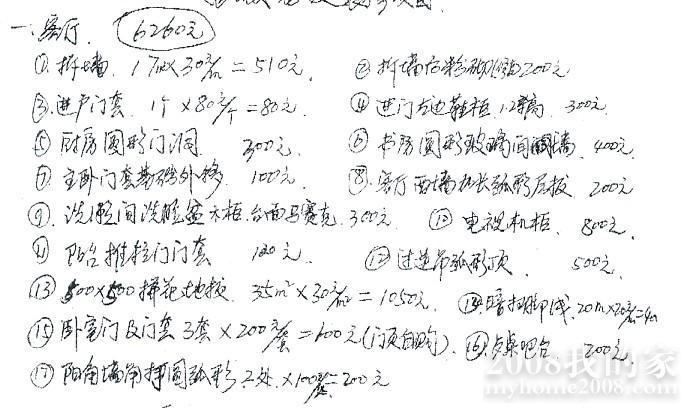 一、客厅. 6260元
① 拆墙. 17m×30元/m = 510元. ② 拆墙 200元
③ 进户门套. 1个×80元/个 = 80元. ④ 进门左边鞋柜 1.2高 300元.
⑤ 厨房圆形门洞 300元. ⑥ 书房圆形玻璃间隔墙. 400元.
⑦ 主卧门套 外移. 100元. ⑧ 客厅西墙 长弧形 200元
⑨ 洗脸间洗脸盆木柜.台面马赛克. 300元. ⑩ 电视机柜. 800元.
⑪ 阳台推拉门门套 120元. ⑫ 过道吊弧形顶. 500元.
⑬ 500×500拼花地板. 35m²×30元/m² = 1050元. ⑭ 暗扫脚线. 20m×20元/
⑮ 卧室门及门套 3套×200元/套 = 600元(门页自购). ⑯ 吧台. 200元.
⑰ 阳角墙角 圆弧形. 2处.×100元/ = 200元
2008我的家
myhome2008.com